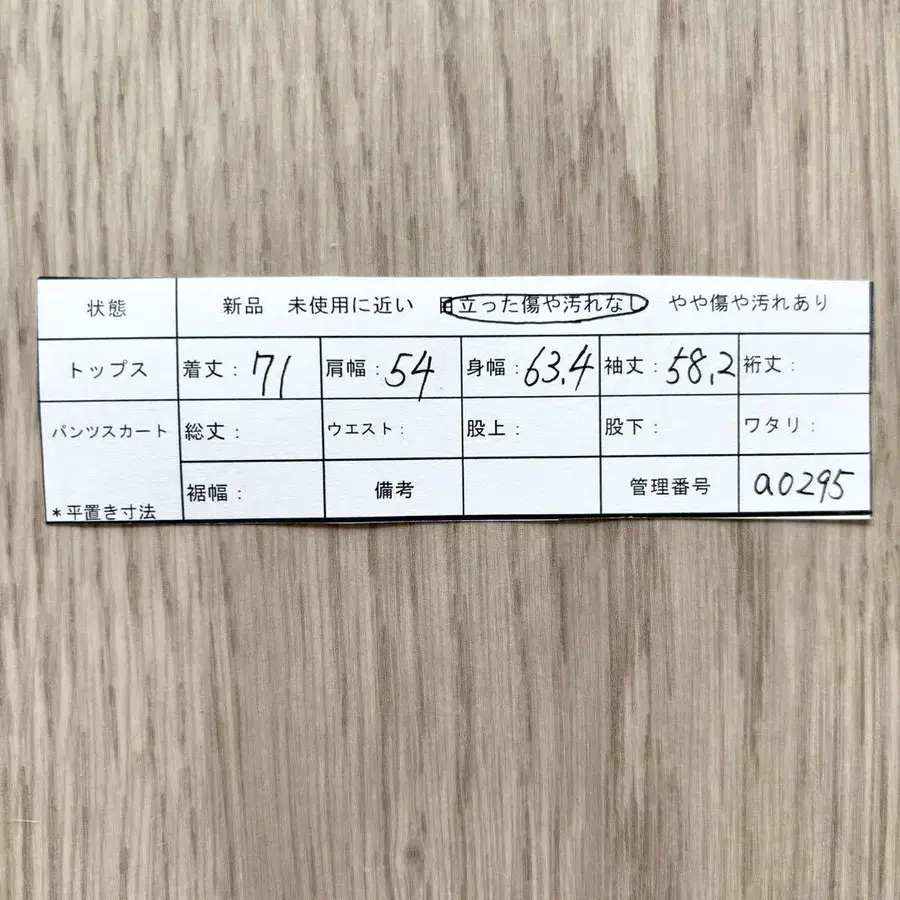 状態 新品 未使用に近い 目立った傷や汚れなし やや傷や汚れあり
トップス 着丈: 71 肩幅: 54 身幅: 63.4 袖丈: 58.2 裄丈:
パンツスカート 総丈: ウエスト: 股上: 股下: ワタリ:
裾幅: 備考 管理番号 a0295
*平置き寸法